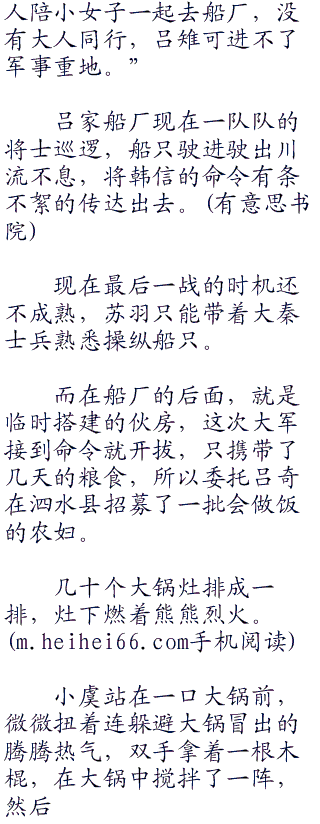 人陪小女子一起去船厂，没
有大人同行，吕雉可进不了
军事重地。”
吕家船厂现在一队队的
将士巡逻，船只驶进驶出川
流不息，将韩信的命令有条
不絮的传达出去。(有意思书
院)
现在最后一战的时机还
不成熟，苏羽只能带着大秦
士兵熟悉操纵船只。
而在船厂的后面，就是
临时搭建的伙房，这次大军
接到命令就开拔，只携带了
几天的粮食，所以委托吕奇
在泗水县招募了一批会做饭
的农妇。
几十个大锅灶排成一
排，灶下燃着熊熊烈火。
(m.heihei66.com手机阅读)
小虞站在一口大锅前，
微微扭着连躲避大锅冒出的
腾腾热气，双手拿着一根木
棍，在大锅中搅拌了一阵，
然后